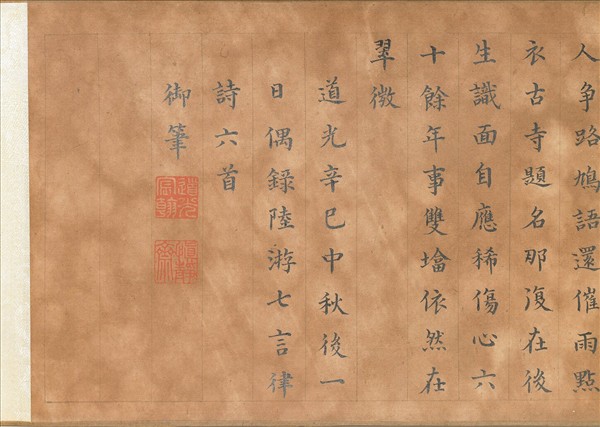 人争路鳩語還催雨點
衣古寺題名那復在後
生識面自應稀傷心六
十餘年事雙墖依然在
翠微
道光辛巳中秋後一
日偶錄陸游七言律
詩六首
御筆
道光宸翰